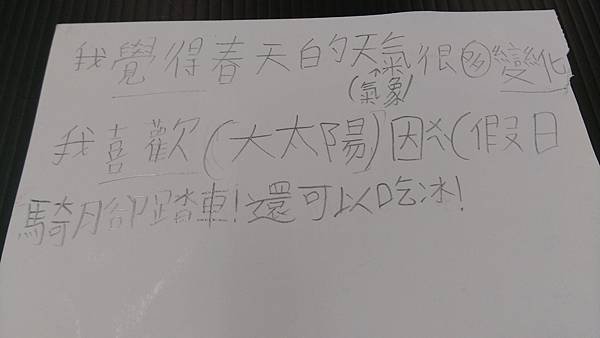 我覺得春天的天氣很多變化
(氣象)
我喜歡(大太陽)因為(假日
騎腳踏車!還可以吃冰!